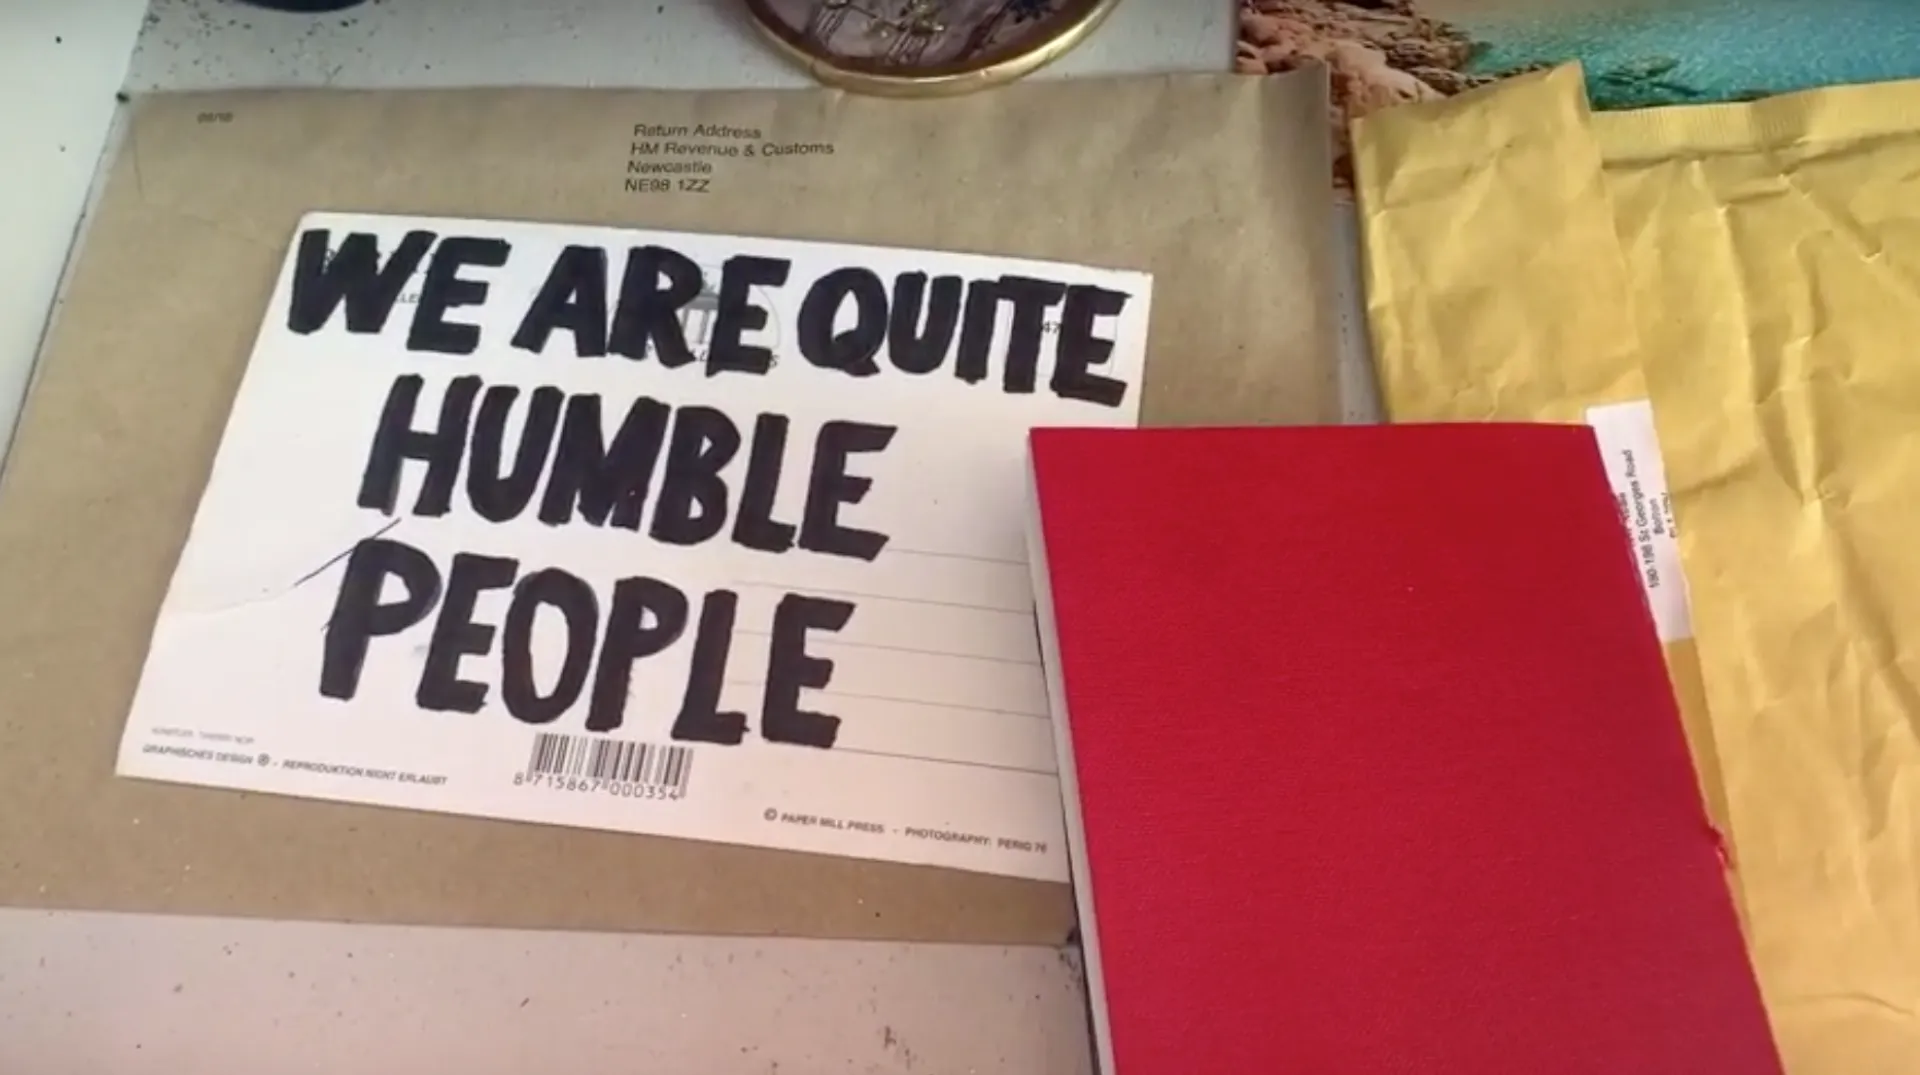 09/18
Return Address
HM Revenue & Customs
Newcastle
NE98 1ZZ
WE ARE QUITE
HUMBLE
PEOPLE
47
GRAPHISCHES DESIGN ® - REPRODUKTION NICHT ERLAUBT
8 715867 000354
© PAPER MILL PRESS - PHOTOGRAPHY: PERIG 76
190-198 St Georges Road
Bolton